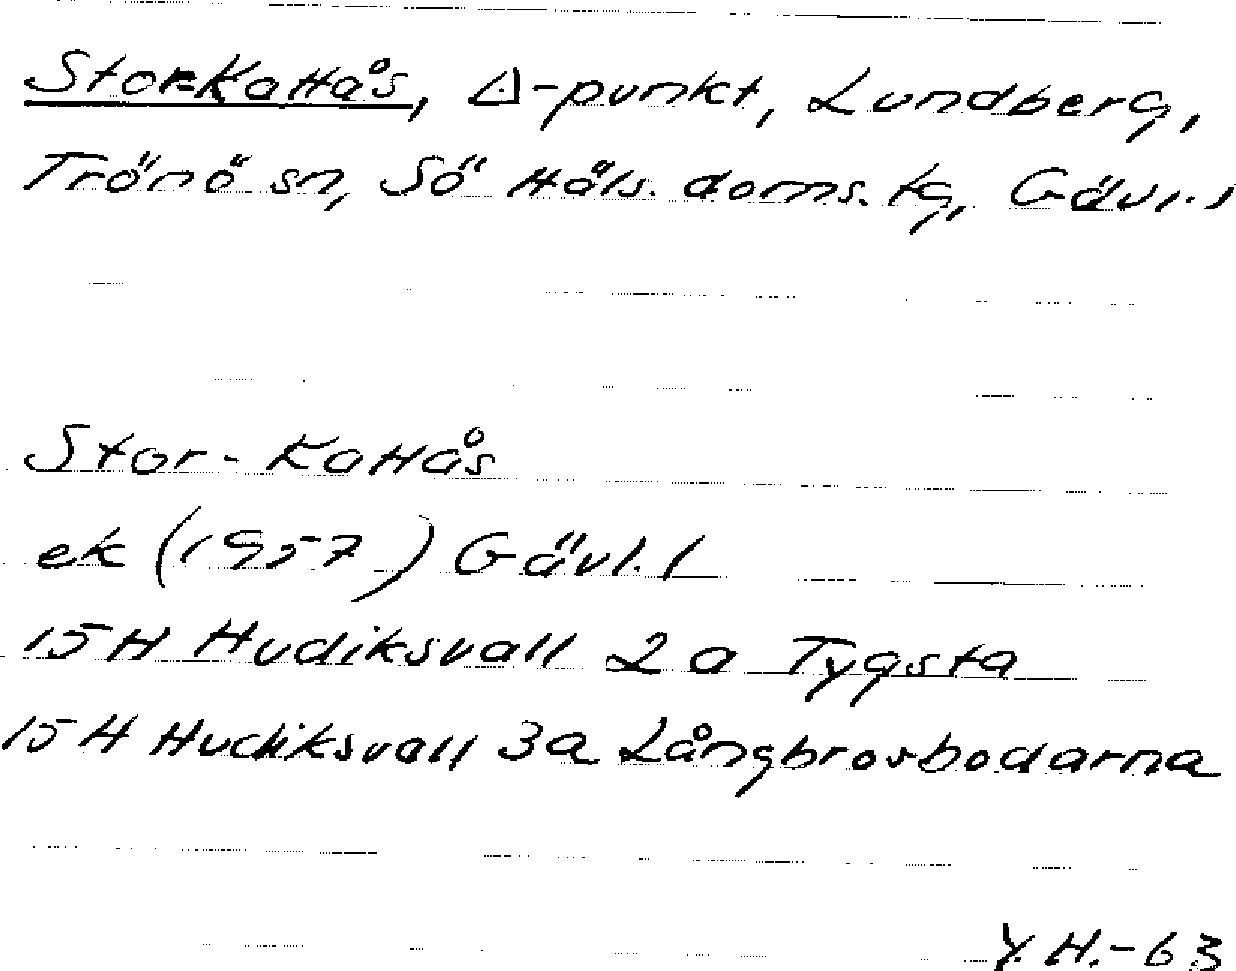 Stor-Kattås, ∆-punkt, Lundberg,
Trönö sn, Sö Häls. doms. tg, Gävl. l
Stor-Kattås
ek (1957) Gävl. l
15H Hudiksvall 2a Tygsta
15H Hudiksvall 3a Långbrosbodarna
Y.H.-63